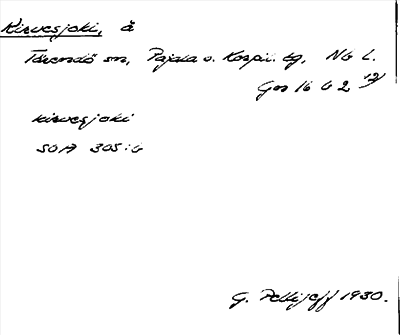 Kirvesjoki, å
Tärendö sn, Pajala o. Korpil. tg, Nb l.
Gen 16 G 2 12/
kirvesjoki
SOA 305:6
G. Pellijeff 1930.